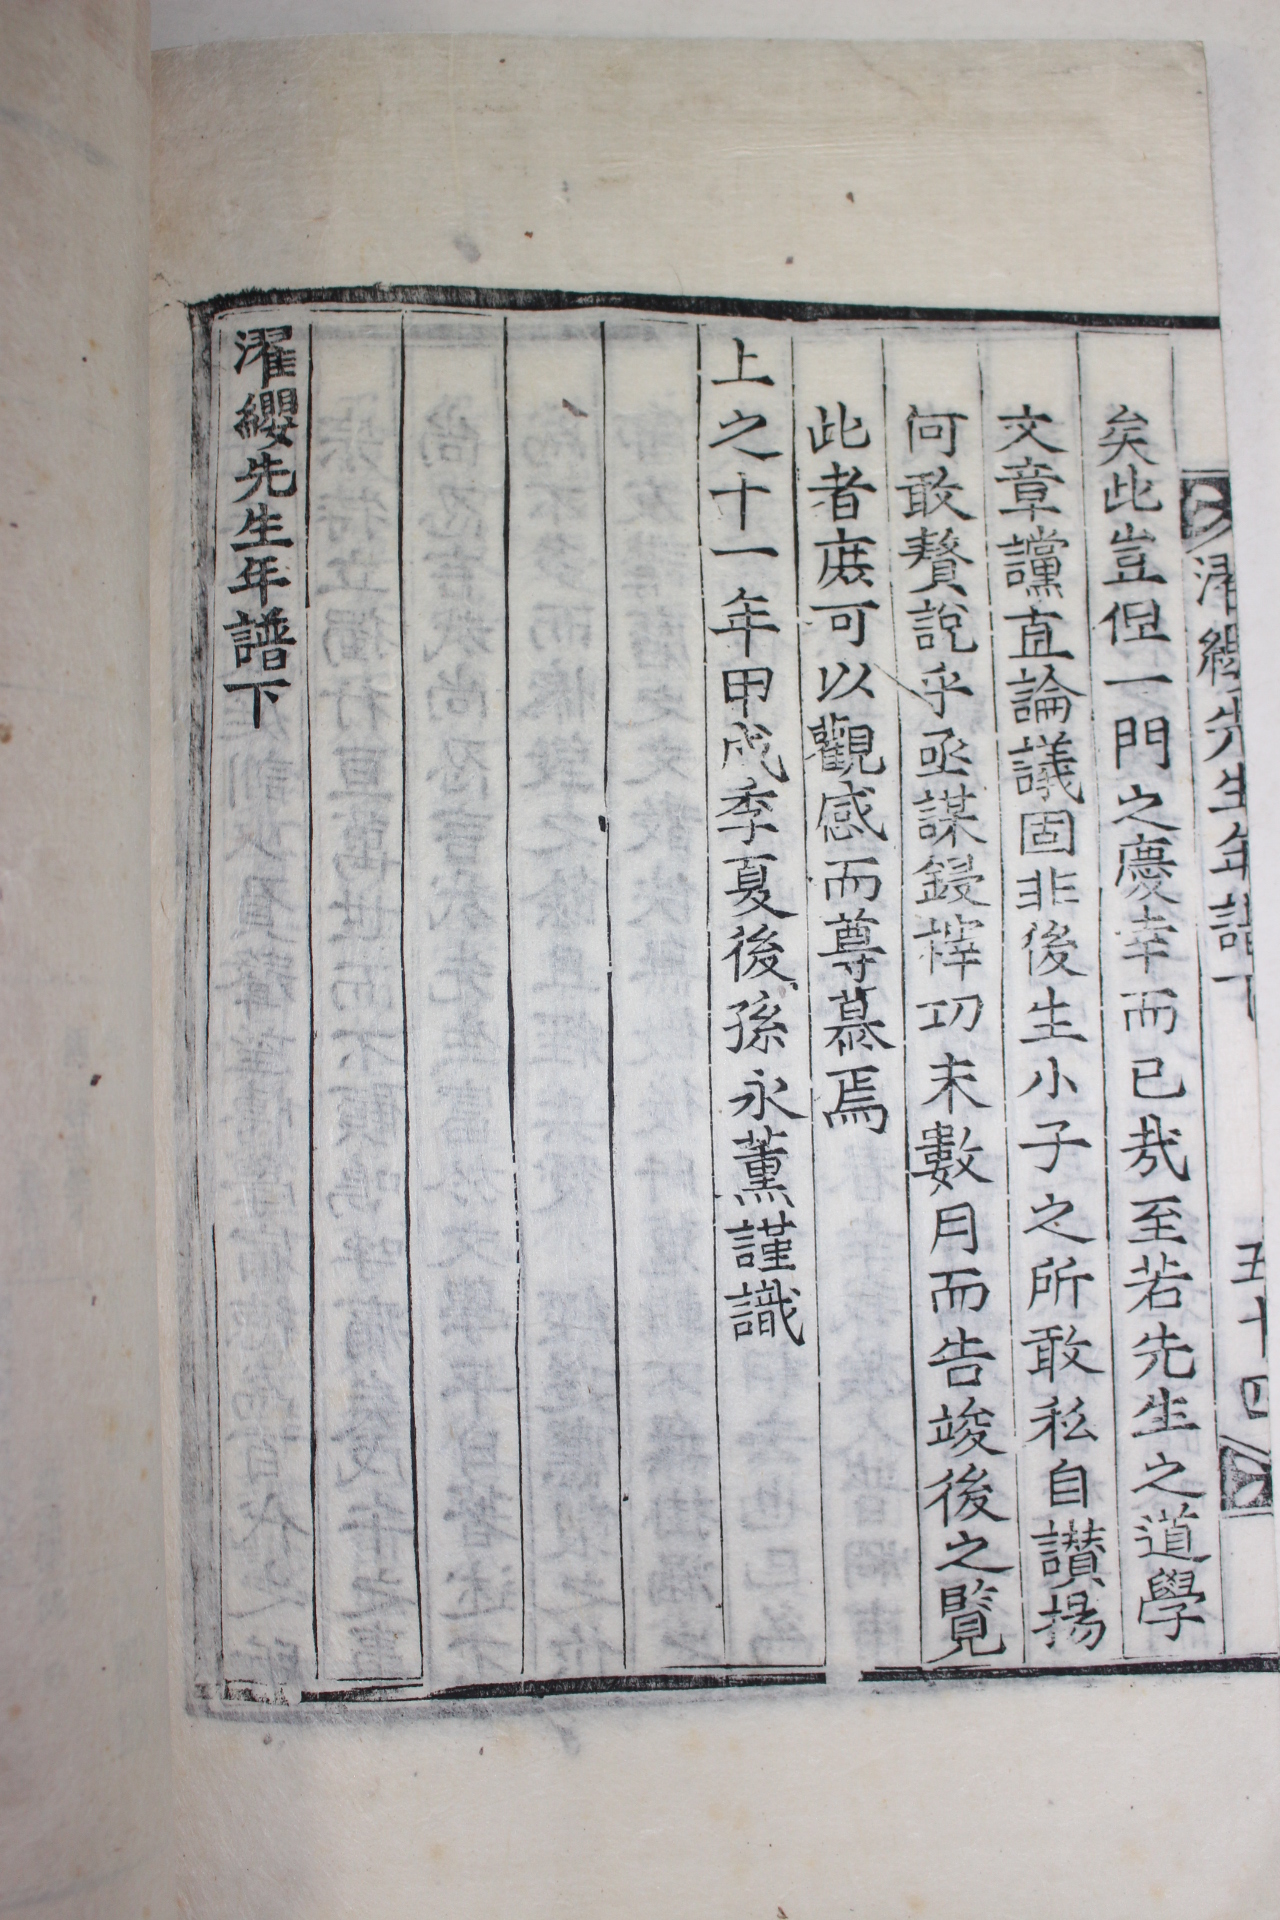 濯纓先生年譜下
五十四
矣此豈但一門之慶幸而已哉至若先生之道學
文章讜直論議固非後生小子之所敢私自讚揚
何敢贅說乎亟謀鋟梓功未數月而告竣後之覽
此者庶可以觀感而尊慕焉
上之十一年甲戌季夏後孫永薰謹識
濯纓先生年譜下